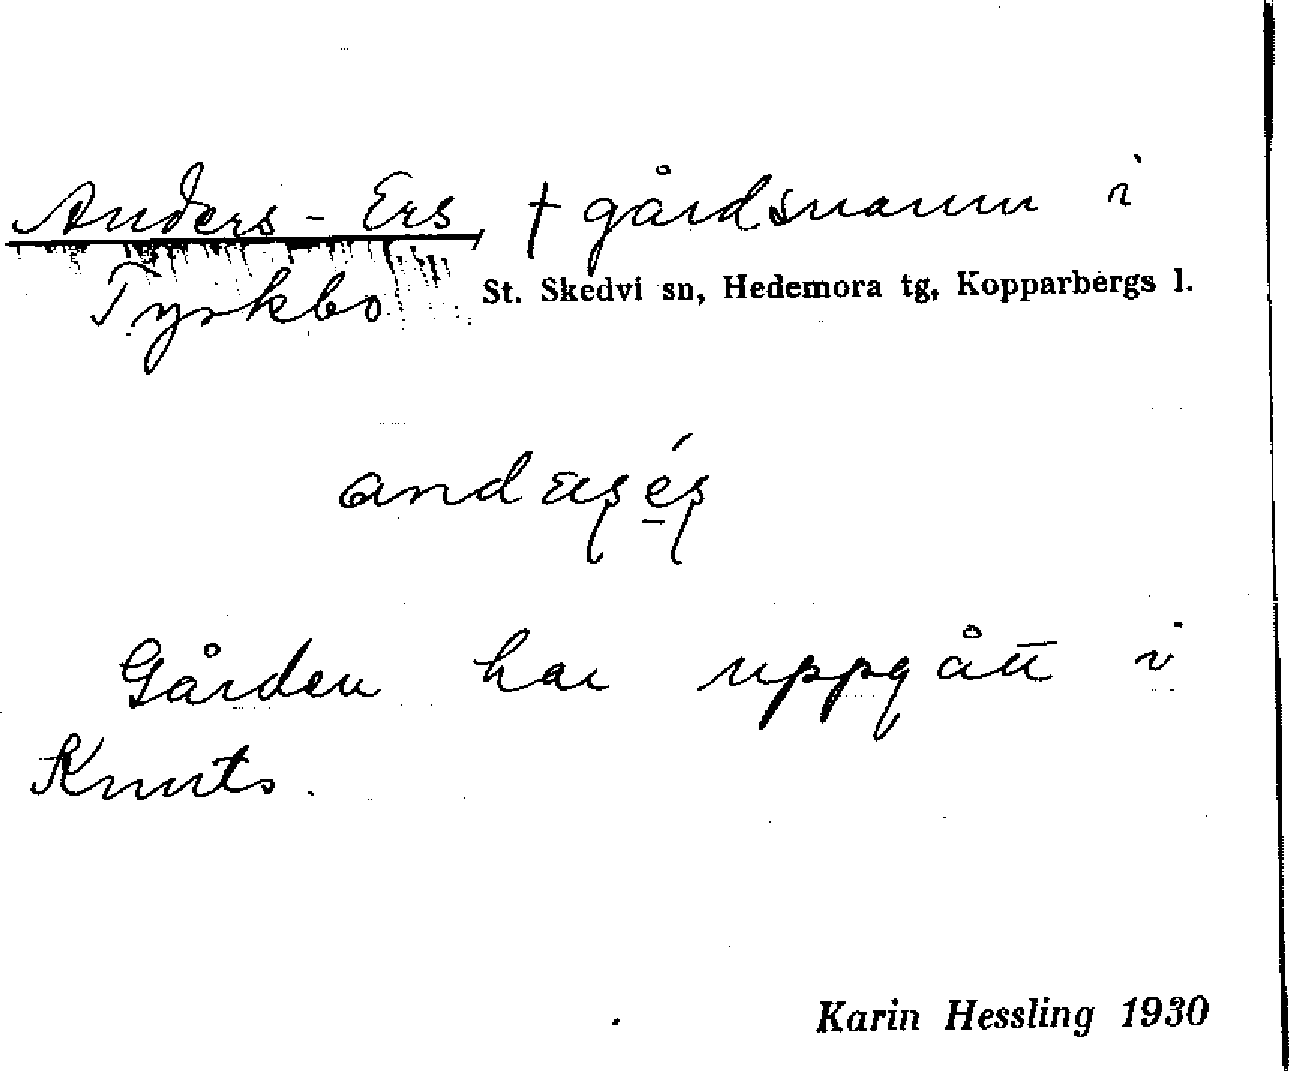 Anders-Ers † gårdsnamn i
Tyskbo St. Skedvi sn, Hedemora tg, Kopparbergs l.
Gården har uppgått i
Knuts.
Karin Hessling 1930